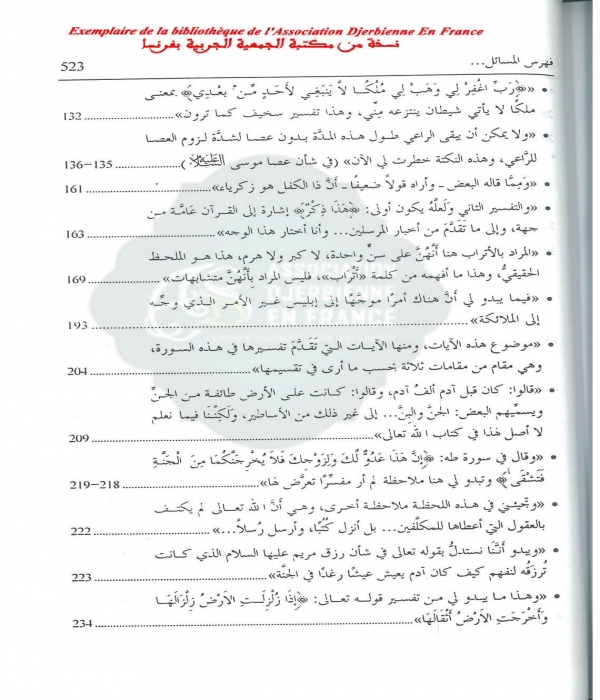 Exemplaire de la bibliothèque de l'Association Djerbienne En France
نسخة من مكتبة الجمعية الجربية بفرنسا
فهرس المسائل... 523
• «﴿رَبِّ اغْفِرْ لِي وَهَبْ لِي مُلْكًا لاَّ يَنبَغِي لأَحَدٍ مِّنْ بَعْدِي﴾ بمعنى
ملكًا لا يأتي شيطان ينتزعه مِنِّي، وهذا تفسير سخيف كما ترون» 132
• «ولا يمكن أن يبقى الراعي طول هذه المدَّة بدون عصا لشدَّة لزوم العصا
للرَّاعي، وهذه النكتة خطرت لي الآن» (في شأن عصا موسى عليه السلام) 135–136
• «ومِمَّا قاله البعض - وأراه قولاً ضعيفًا - أنَّ ذا الكفل هو زكرياء» 161
• «والتفسير الثاني ولَعلَّهُ يكون أولى: ﴿هَذَا ذِكْرٌ﴾ إشارة إلى القرآن عامَّة من
جهة، وإلى ما تَقَدَّمَ من أخبار المرسلين... وأنا أختار هذا الوجه» 163
• «المراد بالأتراب هنا أنَّهُنَّ على سنٍّ واحدة، لا كبر ولا هرم، هذا هو الملحظ
الحقيقيُّ، وهذا ما أفهمه من كلمة «أَتْرَاب»، فليس المراد بِأَنَّهُنَّ متشابهات» 169
• «فيما يبدو لي أنَّ هناك أمرًا موجَّهًا إلى إبليس غير الأمر الذي وجِّه
إلى الملائكة» 193
• «موضوع هذه الآيات، ومنها الآيات التي تَقَدَّمَ تفسيرها في هذه السورة،
وهي مقام من مقامات ثلاثة بحسب ما أرى في تقسيمها» 204
• «قالوا: كان قبل آدم ألفُ آدم، وقالوا: كانت على الأرض طائفة من الجنِّ
ويسمِّيهم البعض: الجنُّ والبنُّ... إلى غير ذلك من الأساطير، ولَكِنَّنَا فيما نعلم
لا أصل لهذا في كتاب الله تعالى» 209
• «وقال في سورة طه: ﴿إِنَّ هَذَا عَدُوٌّ لَّكَ وَلِزَوْجِكَ فَلاَ يُخْرِجَنَّكُمَا مِنَ الْجَنَّةِ
فَتَشْقَى﴾ وتبدو لي هنا ملاحظة لم أر مفسِّرًا تعرَّض لها» 218–219
• «وتجيئني في هذه اللحظة ملاحظة أخرى، وهي أنَّ الله تعالى لم يكتف
بالعقول التي أعطاها للمكلَّفين... بل أنزل كُتُبًا، وأرسل رُسلاً...» 222
• «ويبدو أنَّنَا نستدلُّ بقوله تعالى في شأن رزق مريم عليها السلام الذي كانت
تُرزَقُه لنفهم كيف كان آدم يعيش عيشًا رغدًا في الجنَّة» 223
• «وهذا ما يبدو لي من تفسير قوله تعالى: ﴿إِذَا زُلْزِلَتِ الأَرْضُ زِلْزَالَهَا
وَأَخْرَجَتِ الأَرْضُ أَثْقَالَهَا﴾ 234
ASSOCIATION
DJERBIENNE
EN FRANCE